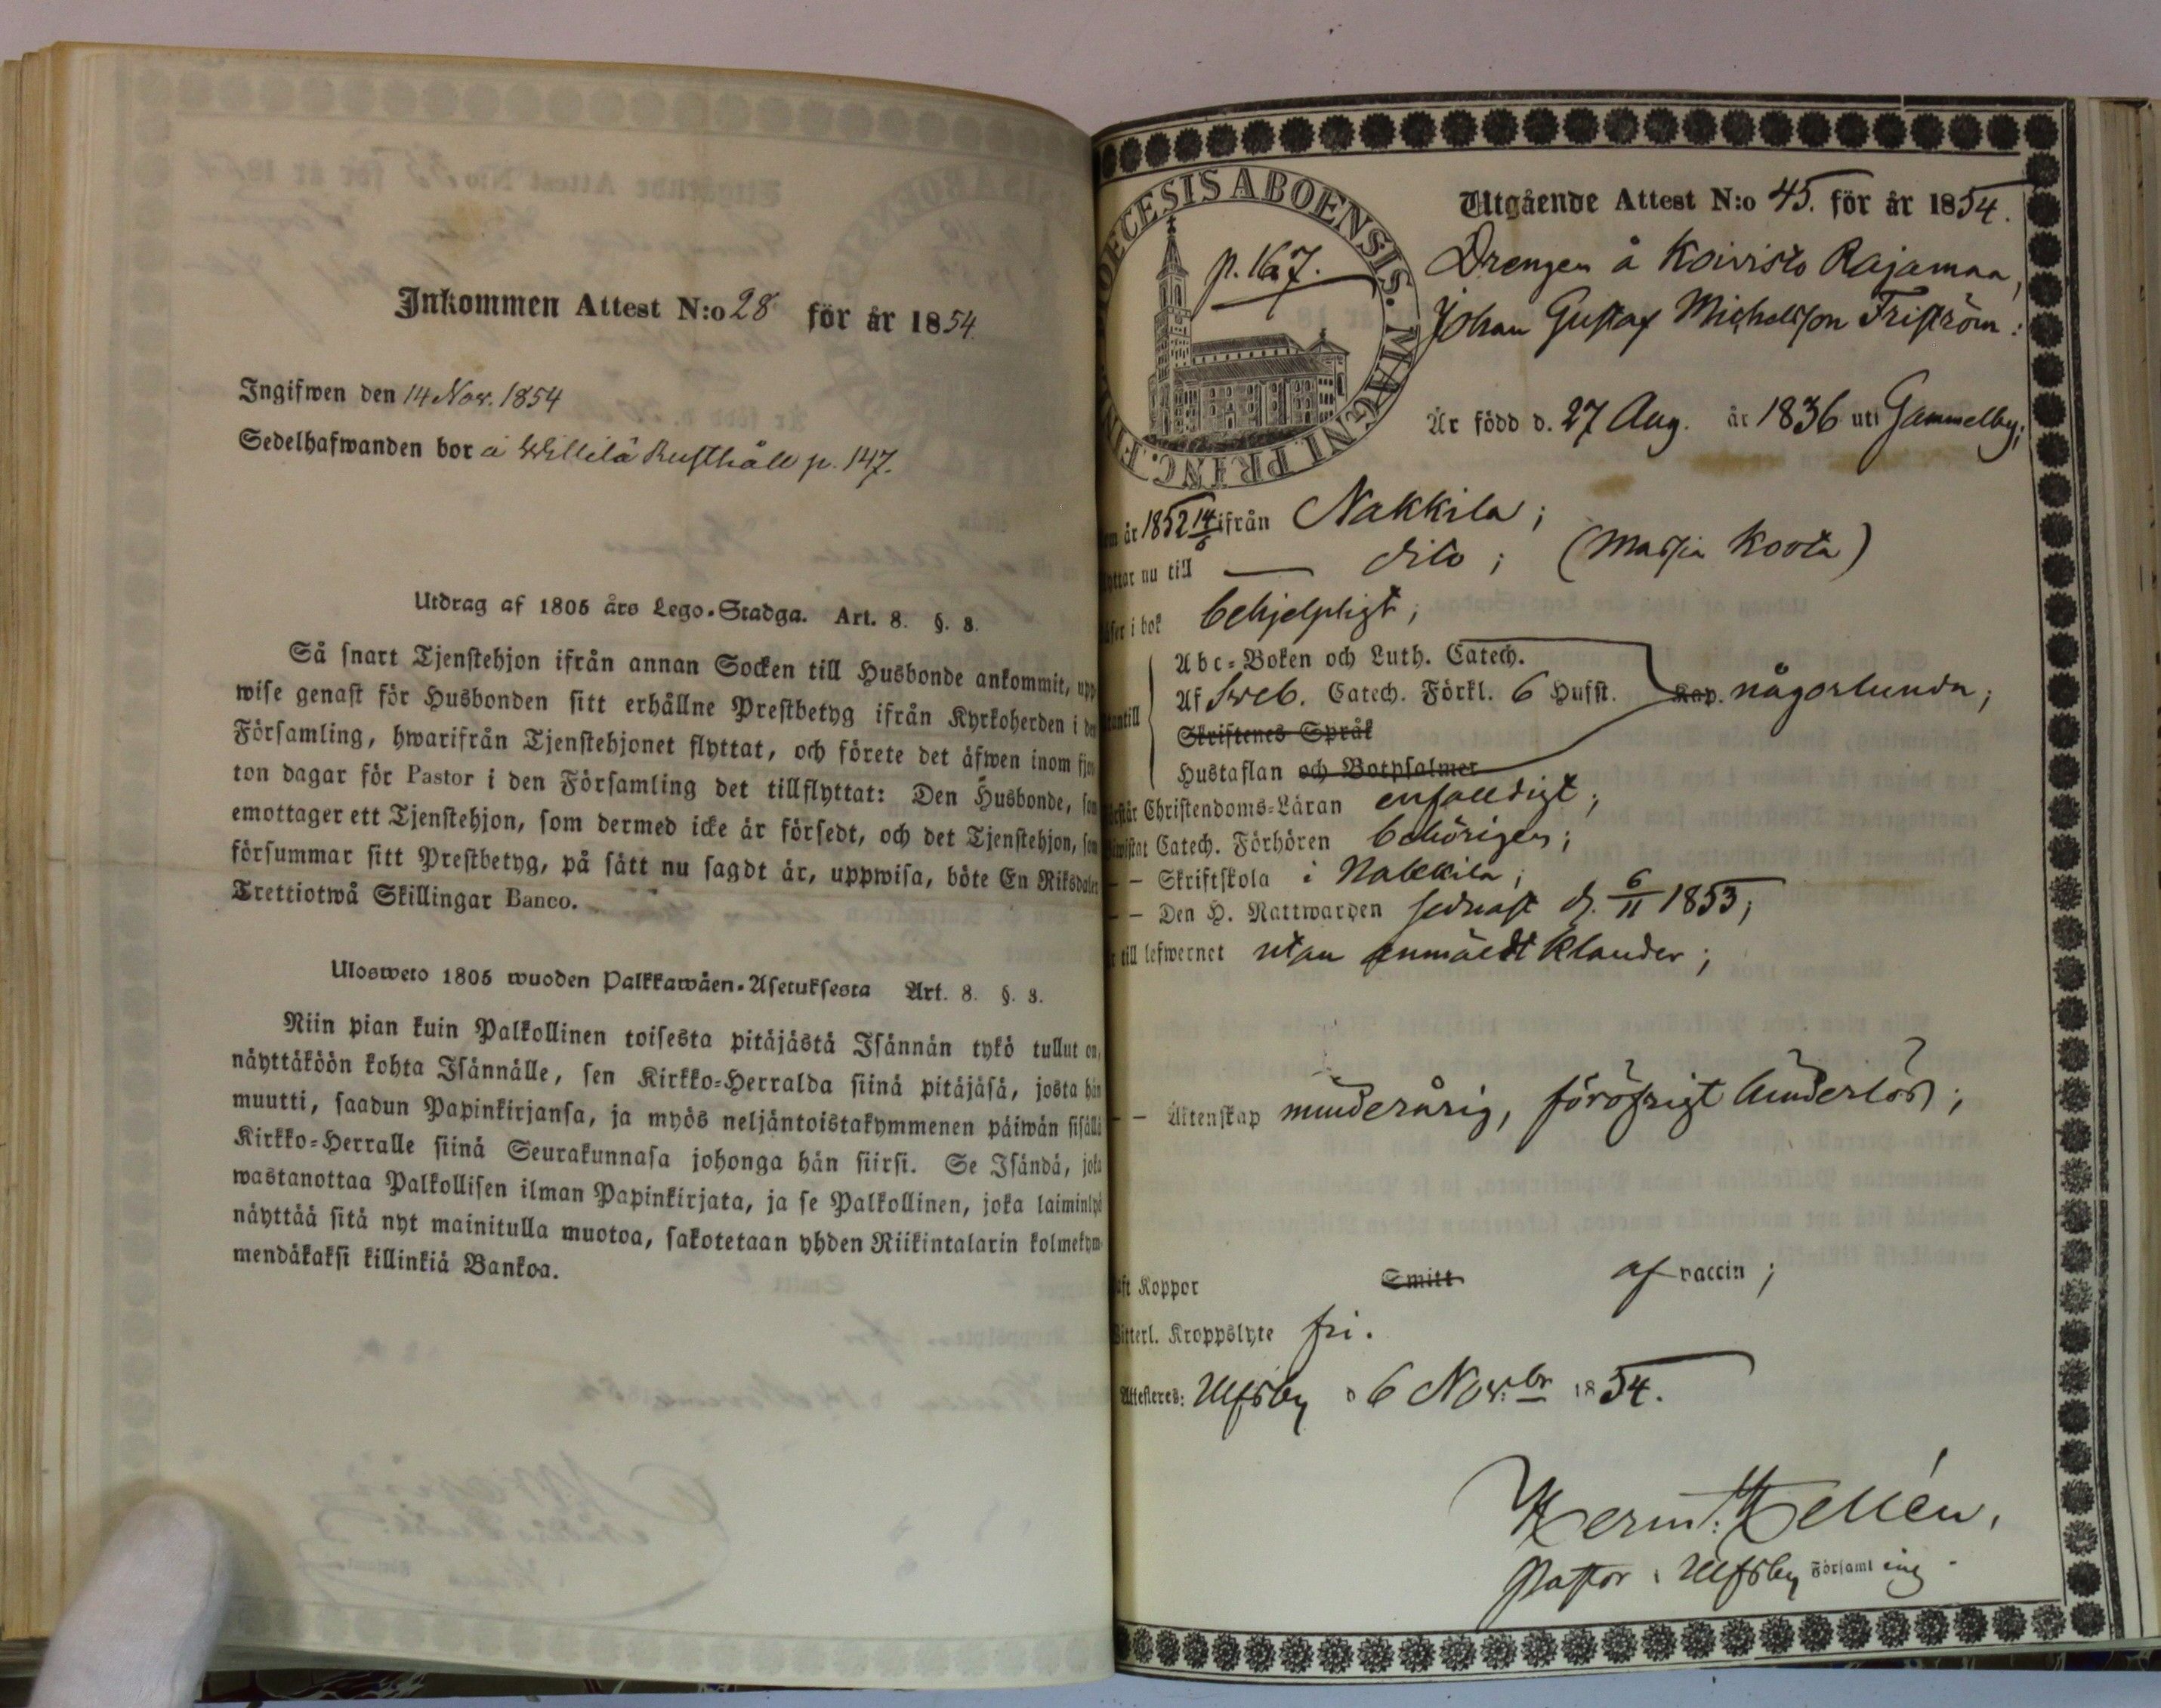 Inkommen Attest N:o 28 för år 1854.
Ingifwen den 14 Nov. 1854
Sedelhafwanden bor å Willilä Rusthåll p. 147.
Utdrag af 1805 års Lego-Stadga. Art. 8. §. 8.
Så snart Tjenstehjon ifrån annan Socken till Husbonde ankommit, upp
wise genast för Husbonden sitt erhållne Prestbetyg ifrån Kyrkoherden i den
Församling, hwarifrån Tjenstehjonet flyttat, och förete det äfwen inom fjor
ton dagar för Pastor i den Församling det tillflyttat: Den Husbonde, som
emottager ett Tjenstehjon, som dermed icke är försedt, och det Tjenstehjon, som
försummar sitt Prestbetyg, på sätt nu sagdt är, uppwisa, böte En Riksdaler
Trettiotwå Skillingar Banco.
Ulosweto 1805 wuoden Palkkawäen-Asetuksesta Art. 8. §. 8.
Niin pian kuin Palkollinen toisesta pitäjästä Isännän tykö tullut on,
näyttäköön kohta Isännälle, sen Kirkko-Herralda siinä pitäjäsä, josta hän
muutti, saadun Papinkirjansa, ja myös neljäntoistakymmenen päiwän sisällä
Kirkko-Herralle siinä Seurakunnasa johonga hän siirsi. Se Isändä, joka
wastanottaa Palkollisen ilman Papinkirjata, ja se Palkollinen, joka laiminlyö
näyttää sitä nyt mainitulla muotoa, sakotetaan yhden Riikintalarin kolmekym-
mendäkaksi killinkiä Bankoa.
DIOECESIS ABOENSIS. MAGNI PRINC. FINL
p. 167.
Utgående Attest N:o 45. för år 1854.
Drengen å Koivisto Rajamaa,
Johan Gustaf Michelsson Friström:
Är född d. 27 Aug. år 1836 uti Gammelby;
om år 1852 14/6 ifrån Nakkila;
yttar nu till — dito; (Masia Koota)
äser i bok behjelpligt;
Abc-Boken och Luth. Catech.
utantill Af Sveb. Catech. Förkl. 6 Hufst. Kap. någorlunda;
Skriftenes Språk
Hustaflan och Botpsalmer
örstår Christendoms-Läran enfaldigt;
iwistat Catech. Förhören behörigen;
— — Skriftskola i Nakkila;
— — Den H. Nattwarden sednast d. 6/11 1853;
r till lefwernet utan anmäldt klander;
— — Äktenskap minderårig, föröfrigt hinderlös;
aft Koppor Smitt af vaccin;
Witterl. Kroppslyte fri.
Attesteres: Ulfsby d 6 Nov:br 1854.
Herm: Hellén,
Pastor i Ulfsby Församling.